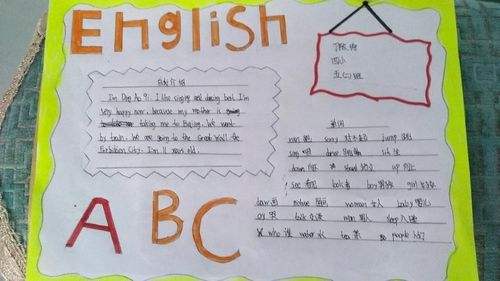 English
自我介绍
I'm Ding Ao Qi. I like singing and dancing best. I'm
very happy now, because my mother is
taking me to Beijing. We went
by train. We are going to the Great Wall the
Forbidden City. I'm 11 years old.
四小
单词
run 跑 sorry 对不起 jump 跳
sing 唱 dance sit 坐
down stand 站立 up 向上
see 看见 look 看 boy 男孩 girl 女孩
draw 画 picture 图画 woman 女人 baby 婴儿
cry 哭 talk 谈话 man 男人 sleep 入睡
who 谁 water 水 tea 茶 people 人们
A BC